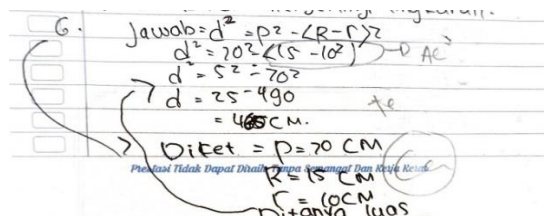 6. Jawab = d² = P² - (R - r)²
d² = 20² = (15 - 10²) → AC
d² = 5² - 202
d = 25 - 490
= 465 CM.
Diket = P = 20 CM
Prestasi Tidak Dapat Diraih Tanpa Semangat Dan Kerja Keras.
R = 15 CM
r = 10 CM
Ditanya luas